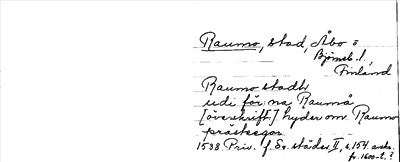 Raumo, stad, Åbo o
Björneb. l.,
Finland
Raumo stadh
udi för:na Raumå
[överskrift] lyder om Raumo
prästegar
1538 Priv. f. Sv. städer II, s. 154 avskr.
fr. 1600-t.?